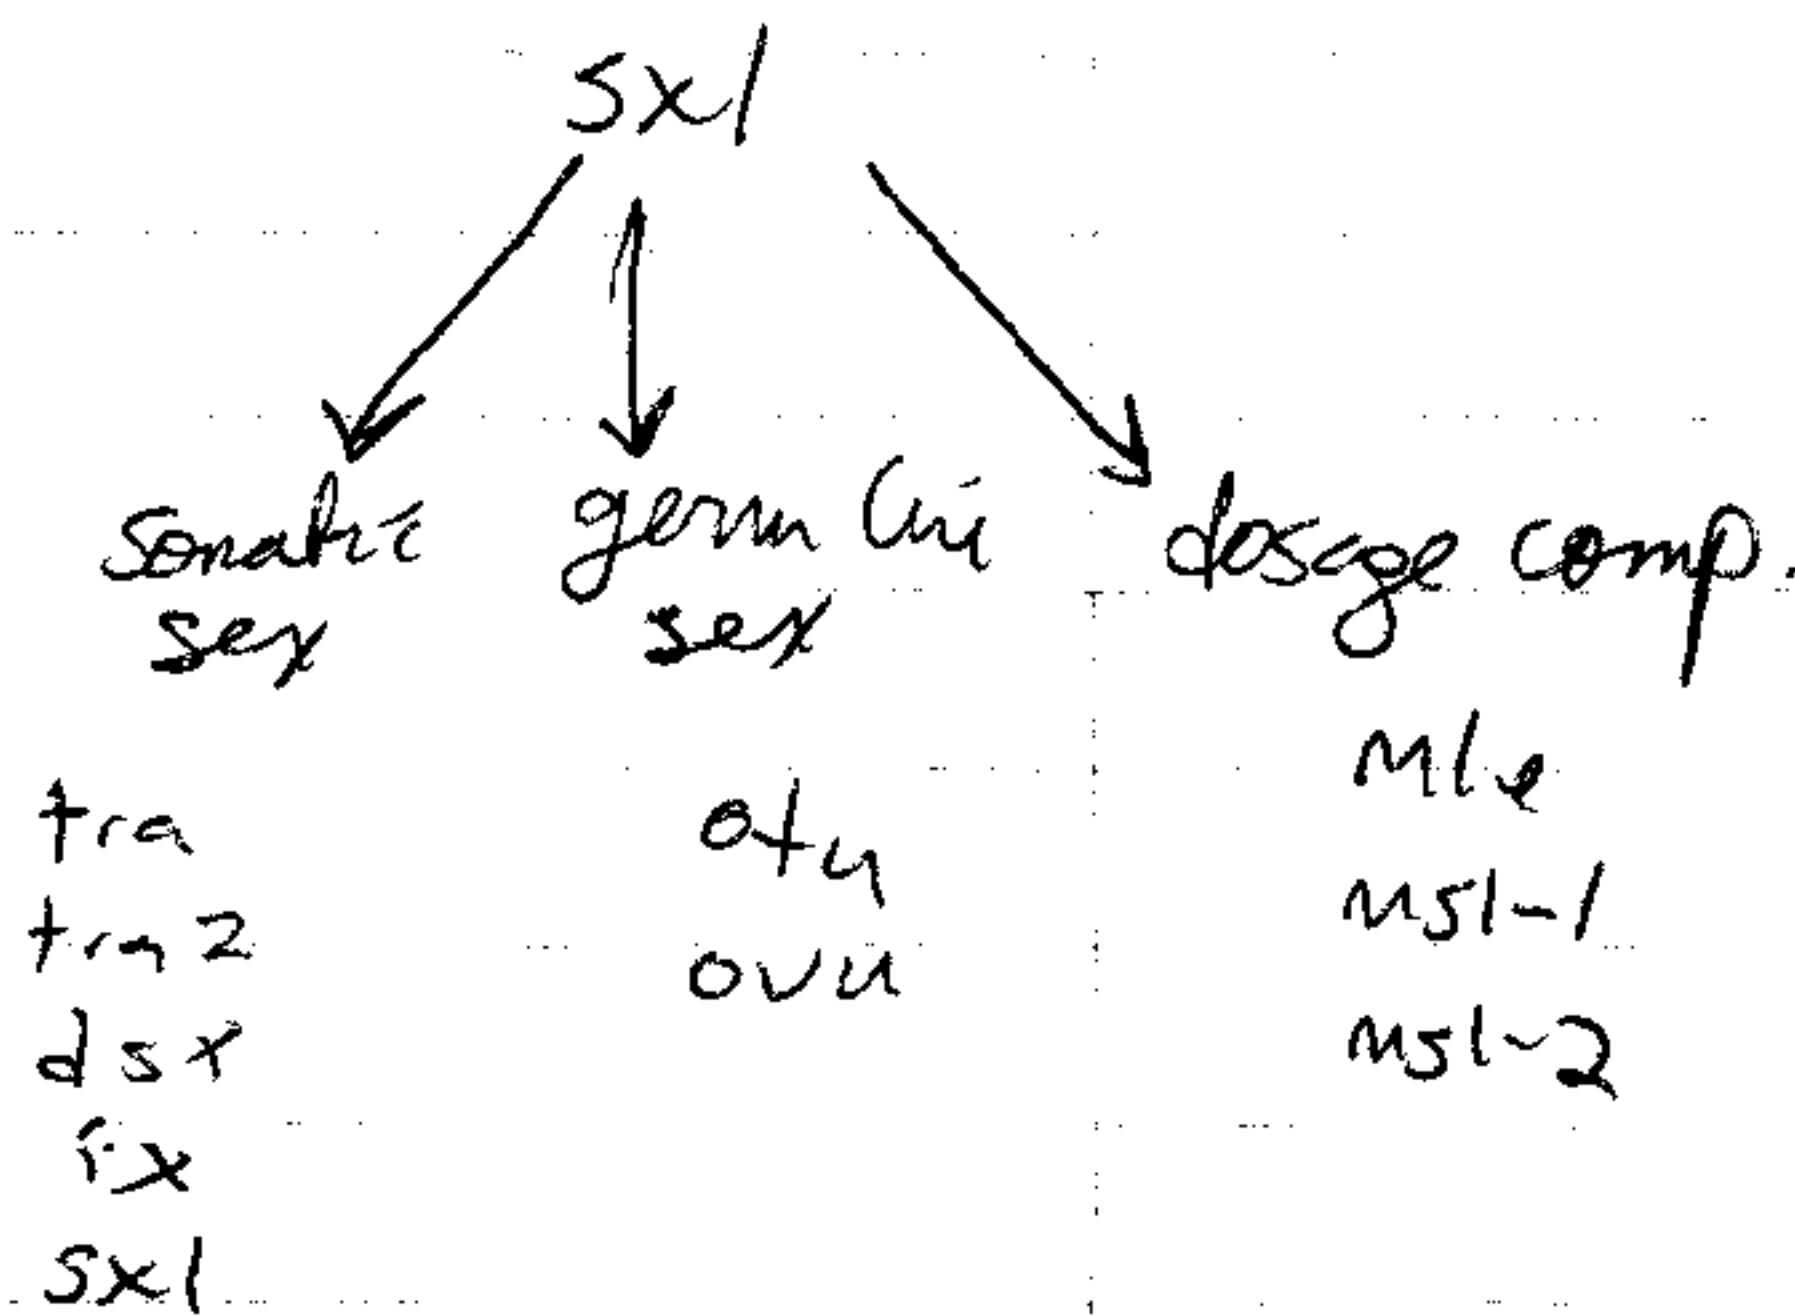 sxl
somatic sex
germ line sex
dosage comp.
tra
tra2
dsx
ix
sxl
otu
ovu
mle
msl-1
msl-2